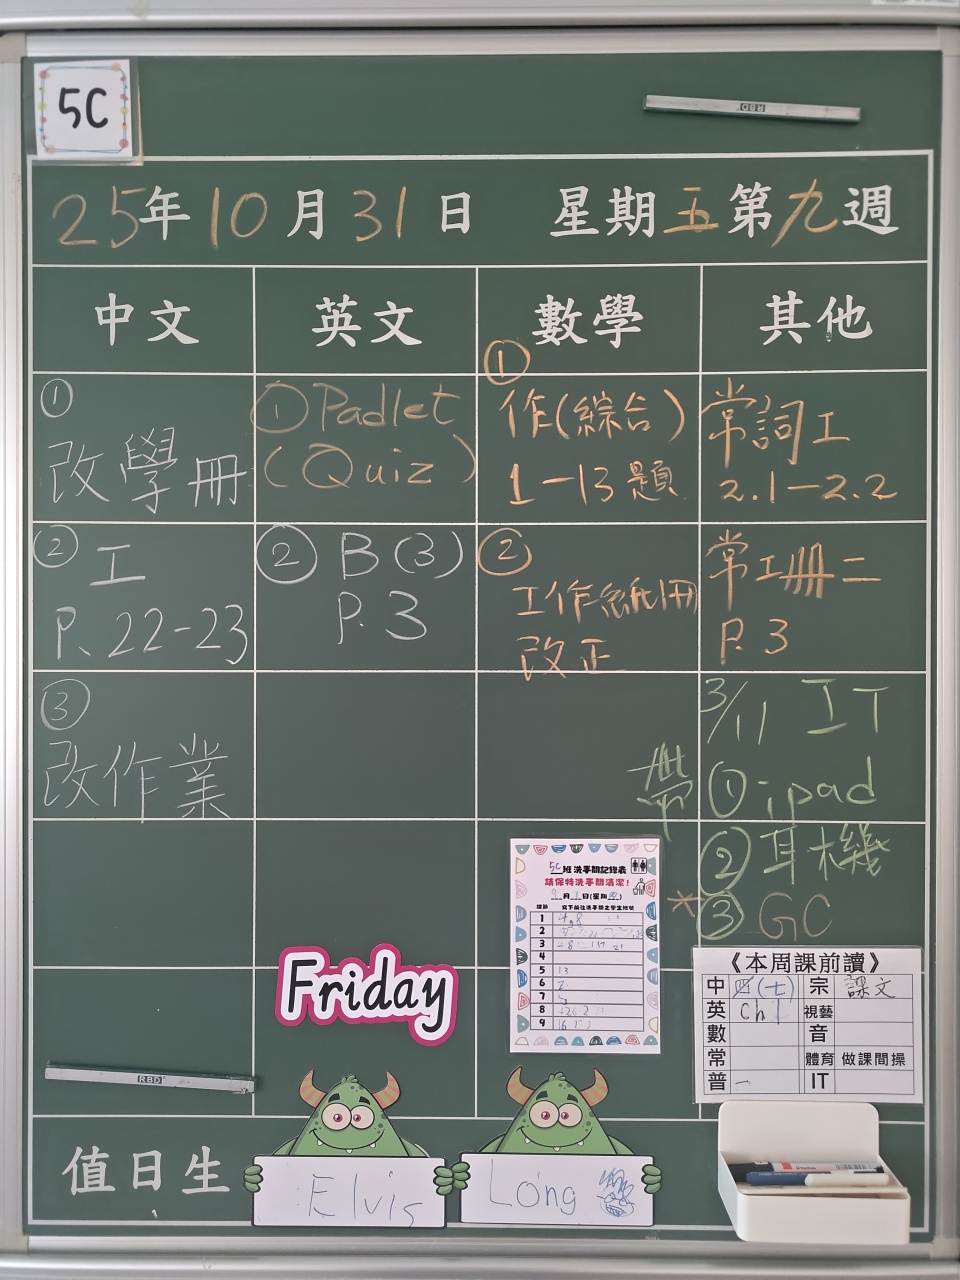 5C
RBD
25年10月31日 星期五第九週
中文 英文 數學 其他
①
改學冊
① Padlet
(Quiz)
①
作(綜合)
1－13題
常詞工
2.1－2.2
② 工
P. 22-23
② B (3)
P. 3
②
工作紙冊
改正
常工冊二
P. 3
③
改作業
3/11 IT
帶 ① ipad
② 耳機
*③ GC
5C班洗手間記錄表
請保持洗手間清潔！
9月1日(星期四)
課節 寫下前往洗手間之學生班號
1 4,8
2
3
4
5 13
6
7
8
9
Friday
《本周課前讀》
中 四(七) 宗 課文
英 Ch1 視藝
數 音
常 體育 做課間操
普 IT
RBD
值日生
Elvis
Long